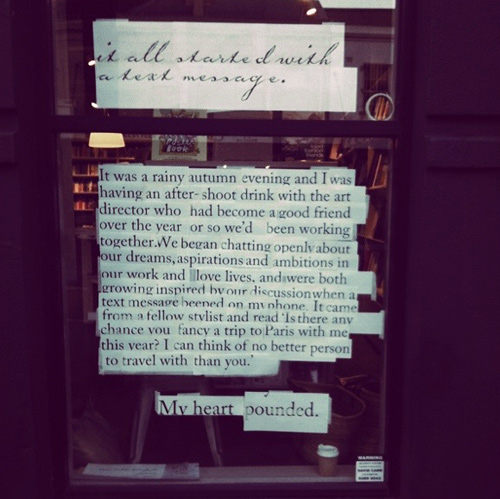 it all started with
a text message.
It was a rainy autumn evening and I was
having an after-shoot drink with the art
director who had become a good friend
over the year or so we'd been working
together. We began chatting openly about
our dreams, aspirations and ambitions in
our work and love lives, and were both
growing inspired by our discussion when a
text message beeped on my phone. It came
from a fellow stylist and read 'Is there any
chance you fancy a trip to Paris with me
this year? I can think of no better person
to travel with than you.'
My heart pounded.
WARNING